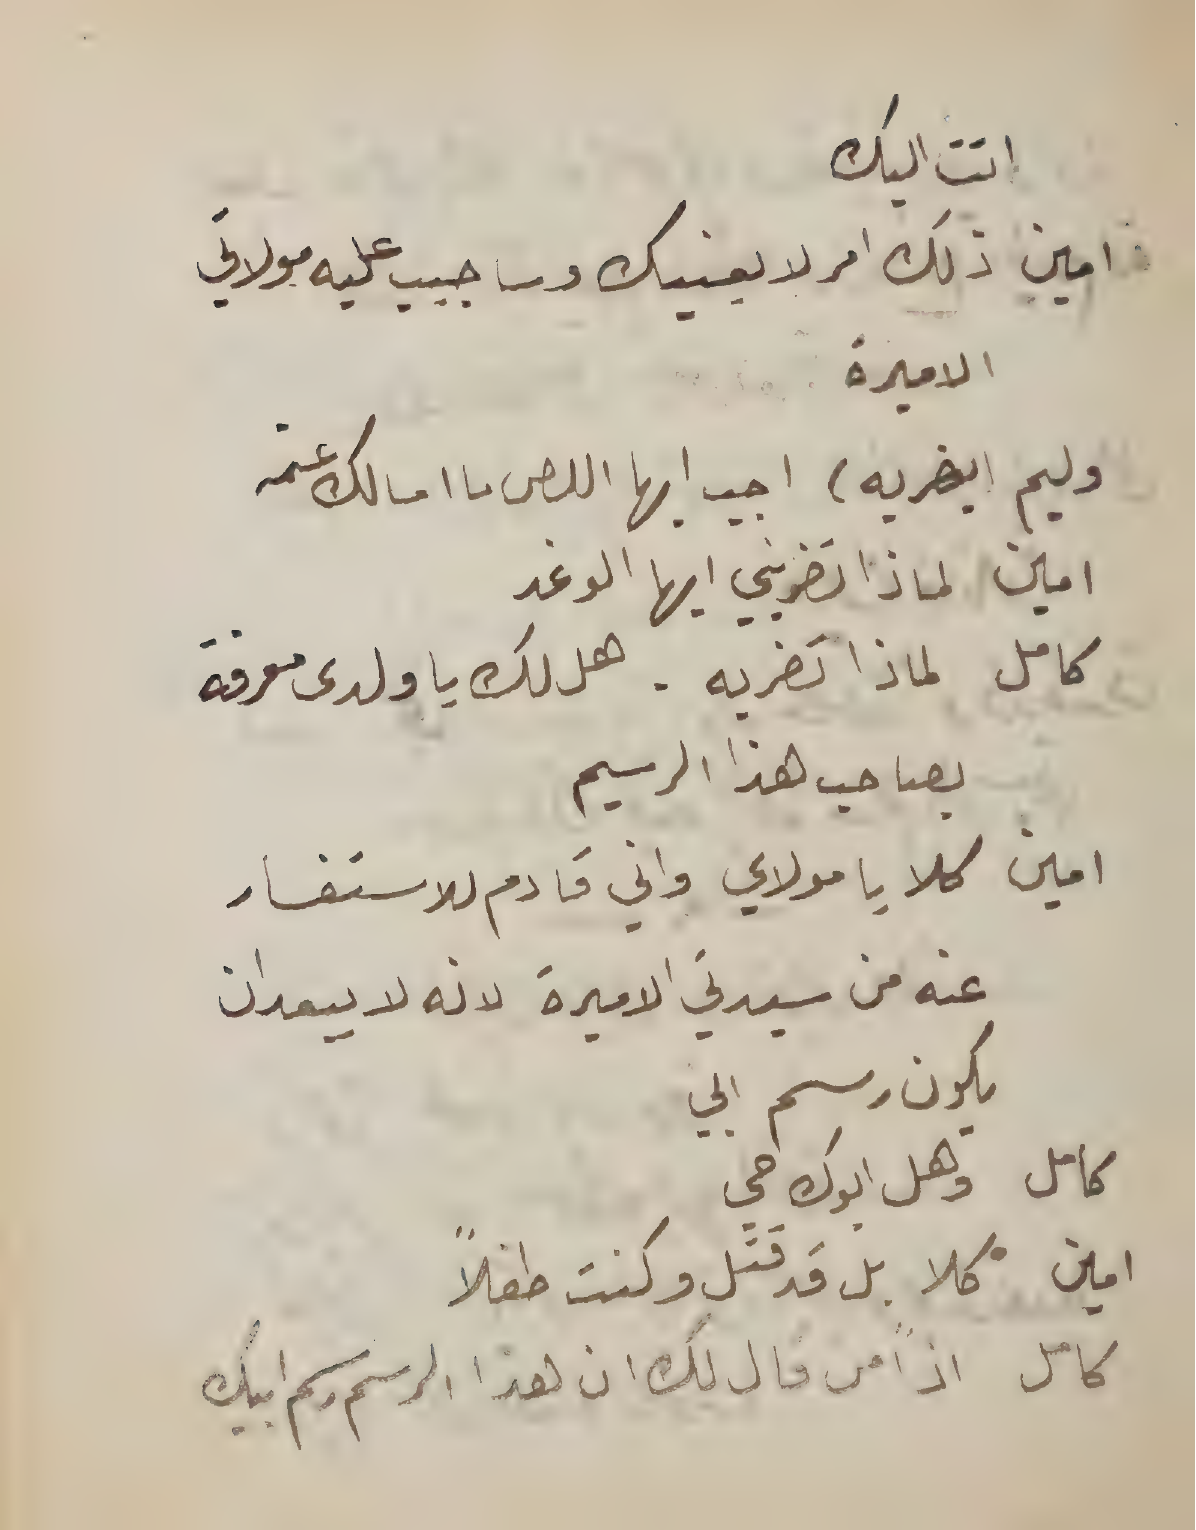 اتت اليك
امين ذلك امر لا يعنيك وساجيب عليه مولاتي
الاميرة
وليم (يضربه) اجب ايها اللص ما اسالك عنه
امين لماذا تضربني ايها الوغد
كامل لماذا تضربه . هل لك يا ولدى معرفة
بصاحب هذا الرسم
امين كلا يا مولاي واني قادم للاستفسار
عنه من سيدتي الاميرة لانه لا يبعد ان
يكون رسم ابي
كامل وهل ابوك حي
امين كلا بل قد قتل وكنت طفلاً
كامل اذاً من قال لك ان هذا الرسم رسم ابيك